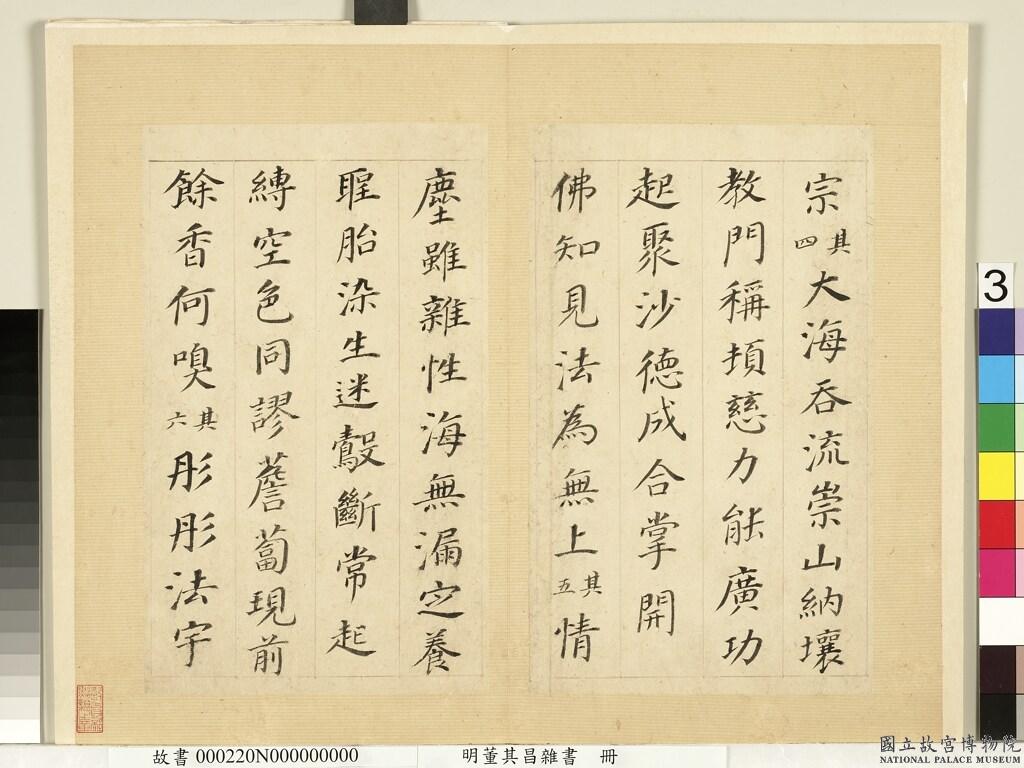 宗其四大海吞流崇山納壤
教門稱頓慈力能廣功
起聚沙德成合掌開
佛知見法為無上其五情
塵雖雜性海無漏定養
聖胎染生迷鷇斷常起
縛空色同謬薝蔔現前
餘香何嗅其六彤彤法宇
3
故書 000220N000000000 明董其昌雜書 冊
國立故宮博物院
NATIONAL PALACE MUSEUM